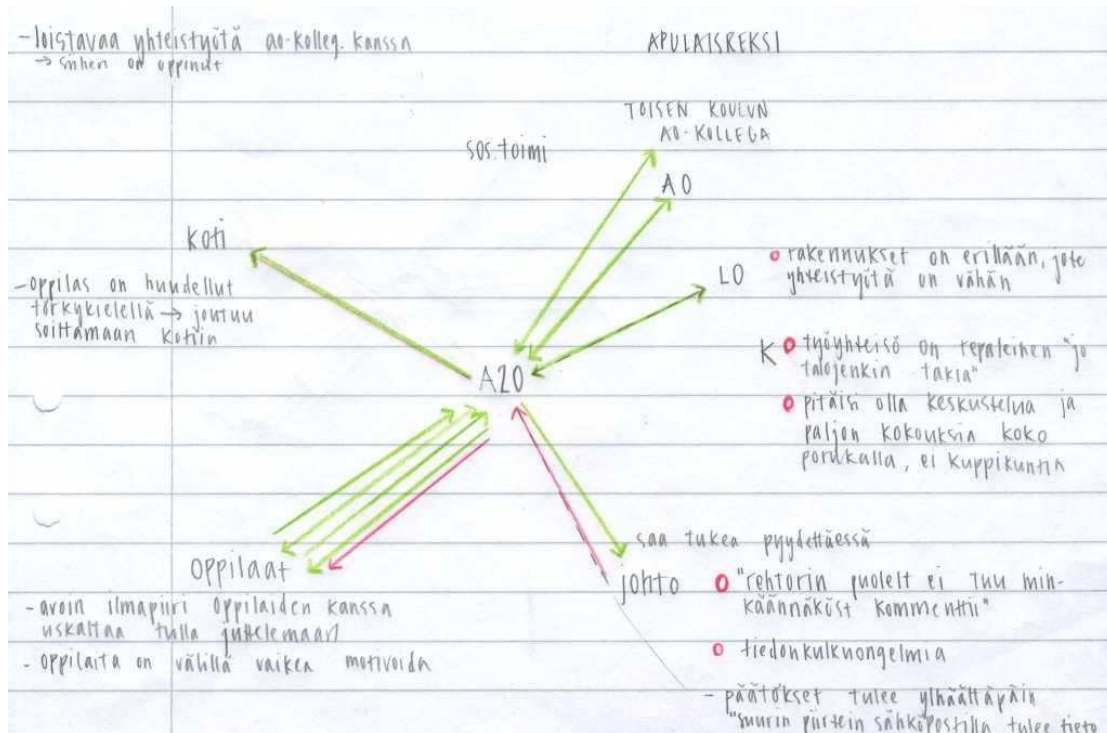 -loistavaa yhteistyötä ao-kolleg. kanssa
→ siihen on oppinut
APULAISREKSI
TOISEN KOULUN
AO-KOLLEGA
sos.toimi
AO
koti
LO
-oppilas on huudellut
törkykielellä → joutuu
soittamaan kotiin
rakennukset on erillään, jote
yhteistyötä on vähän
A20
K
työyhteisö on repaleinen "jo
talojenkin takia"
pitäisi olla keskustelua ja
paljon kokouksia koko
porukalla, ei kuppikuntia
saa tukea pyydettäessä
oppilaat
johto
"rehtorin puolelt ei tuu min-
käännäköst kommenttii"
- avoin ilmapiiri oppilaiden kanssa
uskaltaa tulla juttelemaan
- oppilaita on välillä vaikea motivoida
tiedonkulkuongelmia
- päätökset tulee ylhäältäpäin
"suurin piirtein sähköpostilla tulee tieto